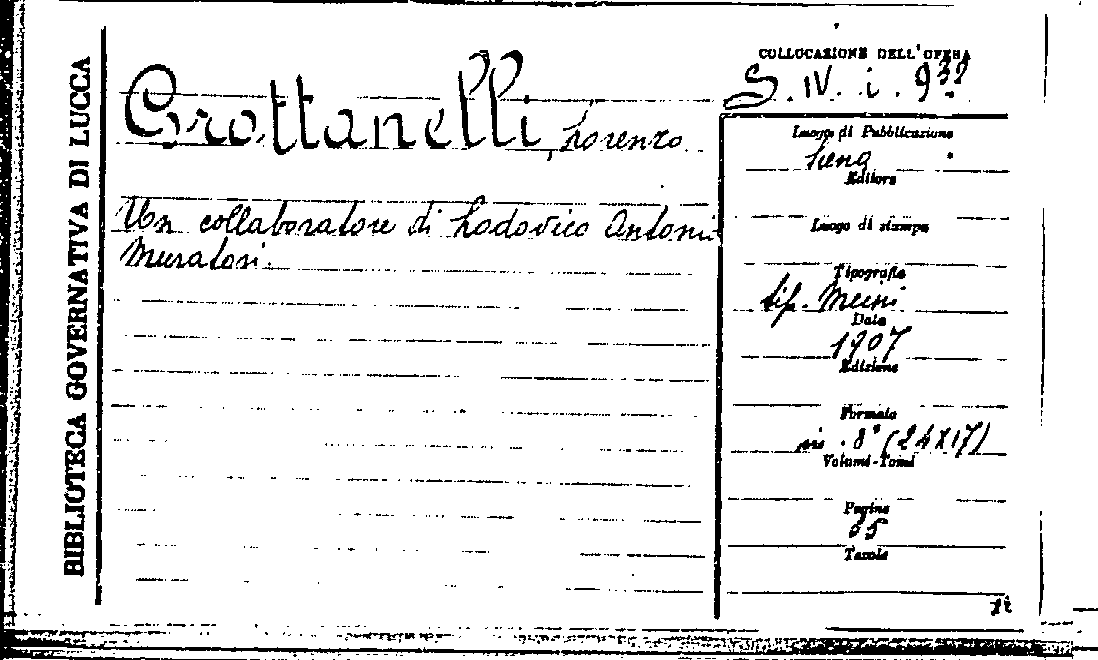 BIBLIOTECA GOVERNATIVA DI LUCCA
Grottanelli, Lorenzo
Un collaboratore di Lodovico Antoni
Muratori.
COLLOCAZIONE DELL'OPERA
S. IV. i. 932
Luogo di Pubblicazione
Siena
Editore
Luogo di stampa
Tipografia
tip. Meini
Data
1907
Edizione
Formato
in. 8° (24X17)
Volumi-Tomi
Pagine
Tavole